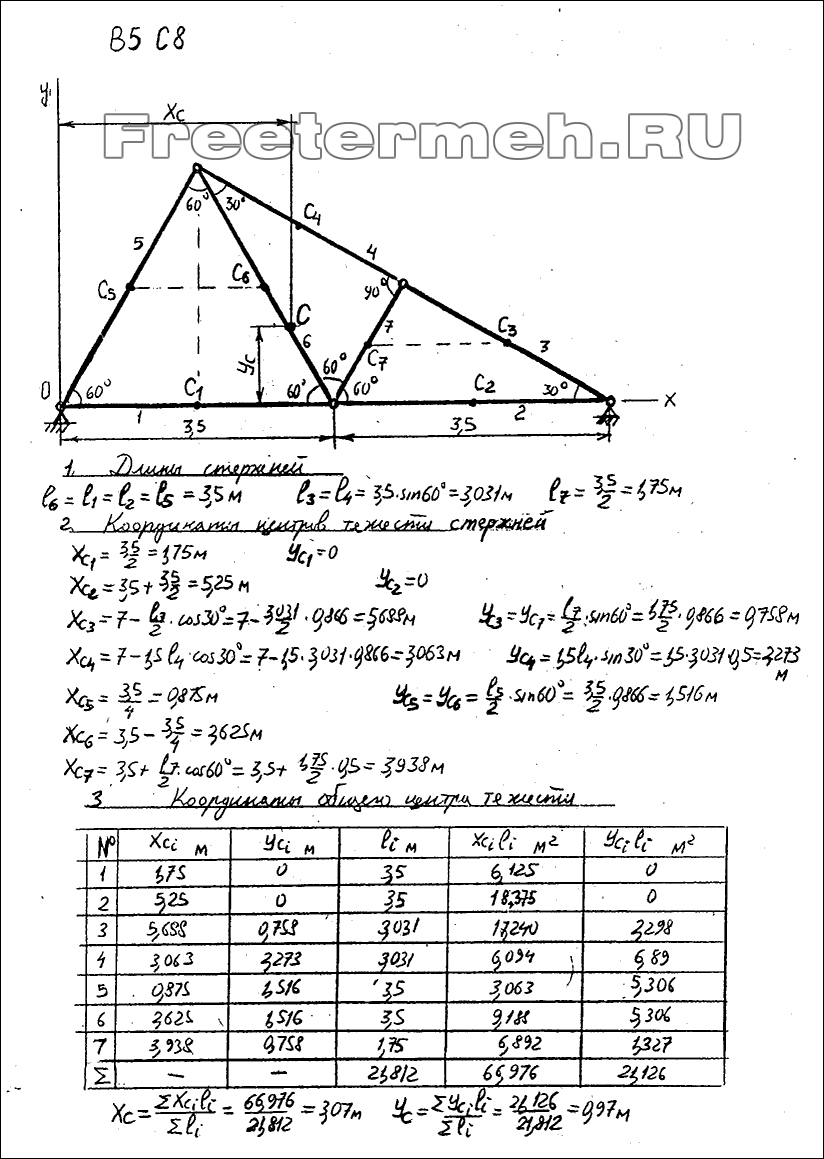 B5 C8
y
Xc
Freetermeh.RU
60° 30°
C4
5
4
C5
C6
90°
C
C3
yc
6
7
3
C7
60°
O
60°
C1
60° 60°
C2
30°
x
1
2
3,5
3,5
1. Длины стержней
l6 = l1 = l2 = l5 = 3,5 м l3 = l4 = 3,5·sin60° = 3,031м l7 = 3,5/2 = 1,75м
2. Координаты центров тяжести стержней
Xc1 = 3,5/2 = 1,75м yc1 = 0
Xc2 = 3,5 + 3,5/2 = 5,25 м yc2 = 0
Xc3 = 7 - l3/2 · cos30° = 7 - 3,031/2 · 0,866 = 5,688м yc3 = yc7 = l7/2 · sin60° = 1,75/2 · 0,866 = 0,758м
Xc4 = 7 - 1,5 l4 · cos30° = 7 - 1,5 · 3,031 · 0,866 = 3,063м yc4 = 1,5l4 · sin30° = 1,5 · 3,031 · 0,5 = 2,273 м
Xc5 = 3,5/4 = 0,875м yc5 = yc6 = l5/2 · sin60° = 3,5/2 · 0,866 = 1,516м
Xc6 = 3,5 - 3,5/4 = 2,625м
Xc7 = 3,5 + l7/2 · cos60° = 3,5 + 1,75/2 · 0,5 = 3,938м
3 Координаты общего центра тяжести
№ Xci м yci м li м Xci li м² yci li м²
1 1,75 0 3,5 6,125 0
2 5,25 0 3,5 18,375 0
3 5,688 0,758 3,031 17,240 2,298
4 3,063 2,273 3,031 6,094 6,89
5 0,875 1,516 3,5 3,063 5,306
6 2,625 1,516 3,5 9,188 5,306
7 3,938 0,758 1,75 6,892 1,327
Σ — — 21,812 66,976 21,126
Xc = ΣXci li / Σli = 66,976/21,812 = 3,07м yc = Σyci li / Σli = 21,126/21,812 = 0,97м